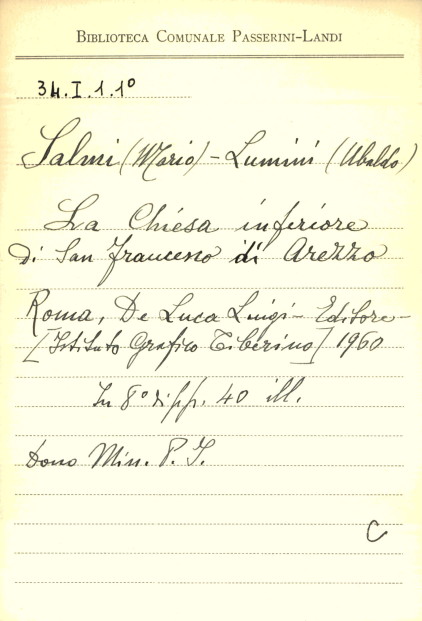 BIBLIOTECA COMUNALE PASSERINI-LANDI
34.I.1.1°
Salmi (Mario) - Lumini (Ubaldo)
La Chiesa inferiore
di San Francesco di Arezzo
Roma, De Luca Luigi - Editore -
[Istituto Grafico Tiberino] 1960
In 8° di pp. 40 ill.
Dono Min. P. I.
C